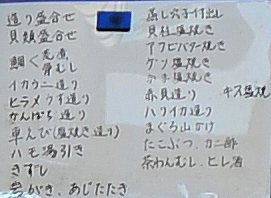 造り盛合せ
貝類盛合せ
鯛く荒煮
骨むし
イカウニ造り
ヒラメうす造り
かんぱち造り
車えび(塩焼き造り)
ハモ湯引き
きずし
がき、あじたたき
蒸し穴子付出し
貝柱塩焼き
アワビバター焼き
ゲソ塩焼き
塩焼き
赤貝造り
キス塩焼
ハリイカ造り
まぐろ山かけ
たこぶつ、カニ酢
茶わんむし、ヒレ酒